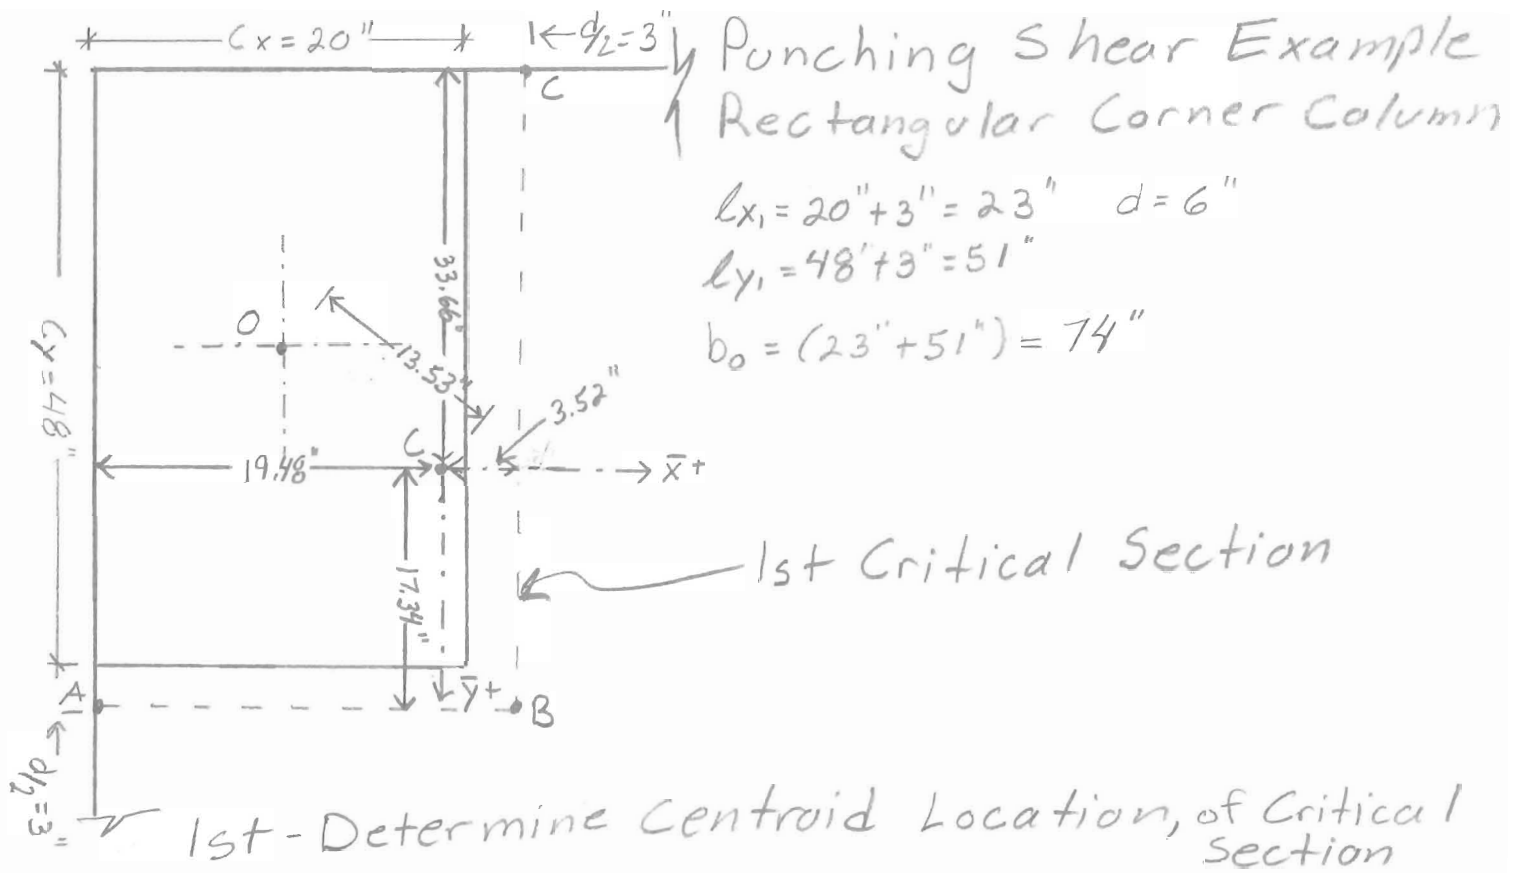 Cx = 20"
d/2 = 3"
Punching Shear Example
Rectangular Corner Column
C
lx₁ = 20" + 3" = 23" d = 6"
ly₁ = 48" + 3" = 51"
b₀ = (23" + 51") = 74"
33.66"
O
13.53"
Cy = 48"
3.52"
C
19.48"
x̄+
1st Critical Section
17.34"
A
ȳ+
B
d/2 = 3"
1st - Determine Centroid Location, of Critical
Section